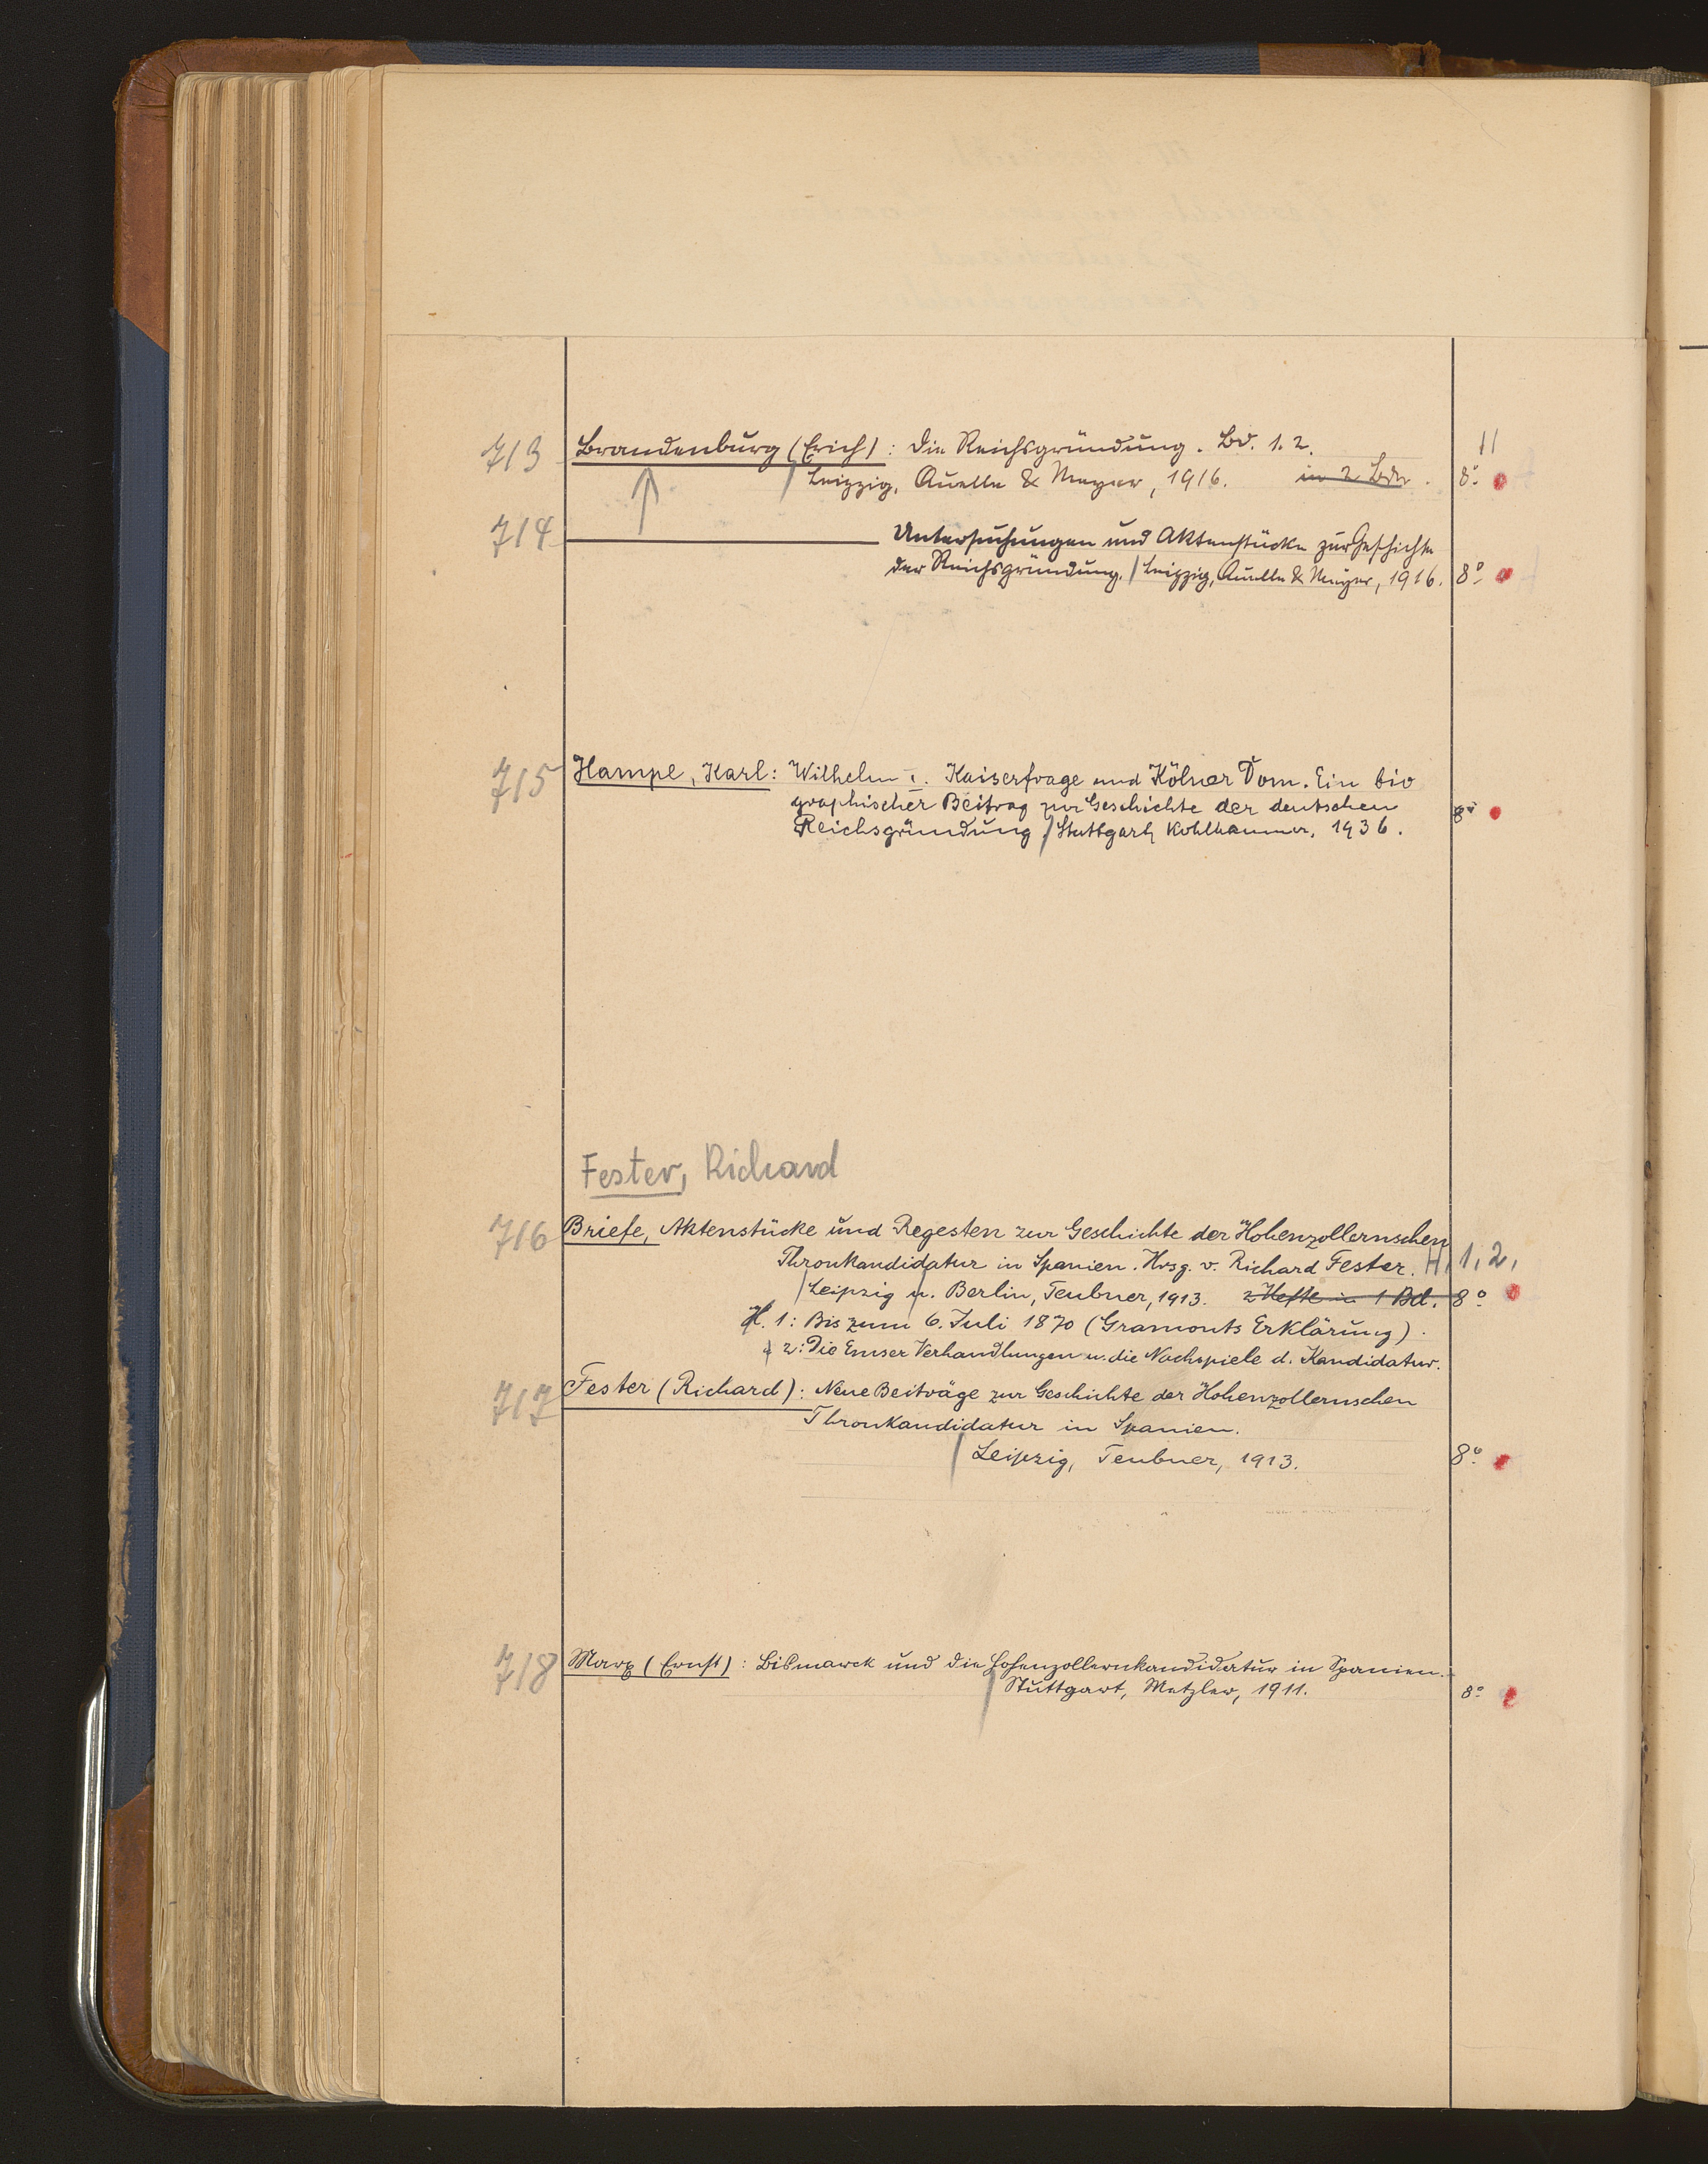 713 Brandenburg (Erich): Die Reichsgründung. Bd. 1. 2. 11
Leipzig, Quelle & Meyer, 1916. in 2 Bdn. 8°
714 Untersuchungen und Aktenstücke zur Geschichte
der Reichsgründung. Leipzig, Quelle & Meyer, 1916. 8°
715 Hampe, Karl: Wilhelm I. Kaiserfrage und Kölner Dom. Ein bio
graphischer Beitrag zur Geschichte der deutschen
Reichsgründung. Stuttgart, Kohlhammer, 1936. 8°
Fester, Richard
716 Briefe, Aktenstücke und Regesten zur Geschichte der Hohenzollernschen
Thronkandidatur in Spanien. Hrsg. v. Richard Fester. H. 1, 2,
Leipzig u. Berlin, Teubner, 1913. 2 Hefte in 1 Bd. 8°
H. 1: Bis zum 6. Juli 1870 (Gramonts Erklärung).
2: Die Emser Verhandlungen u. die Nachspiele d. Kandidatur.
717 Fester (Richard): Neue Beiträge zur Geschichte der Hohenzollernschen
Thronkandidatur in Spanien.
Leipzig, Teubner, 1913. 8°
718 Marx (Ernst): Bismarck und die Hohenzollernkandidatur in Spanien.
Stuttgart, Metzler, 1911. 8°